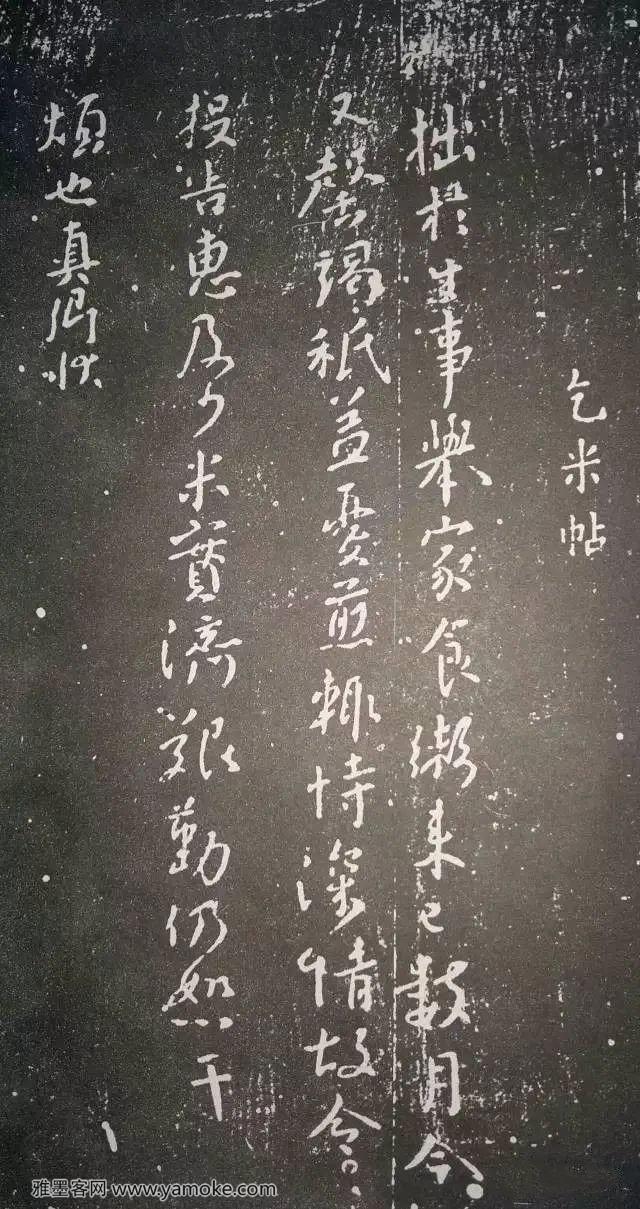 乞米帖
拙於生事舉家食粥來已數月今
又罄竭秪益憂煎輒恃深情故令
投告惠及少米實濟艱勤仍恕干
煩也真卿狀
雅墨客网 www.yamoke.com